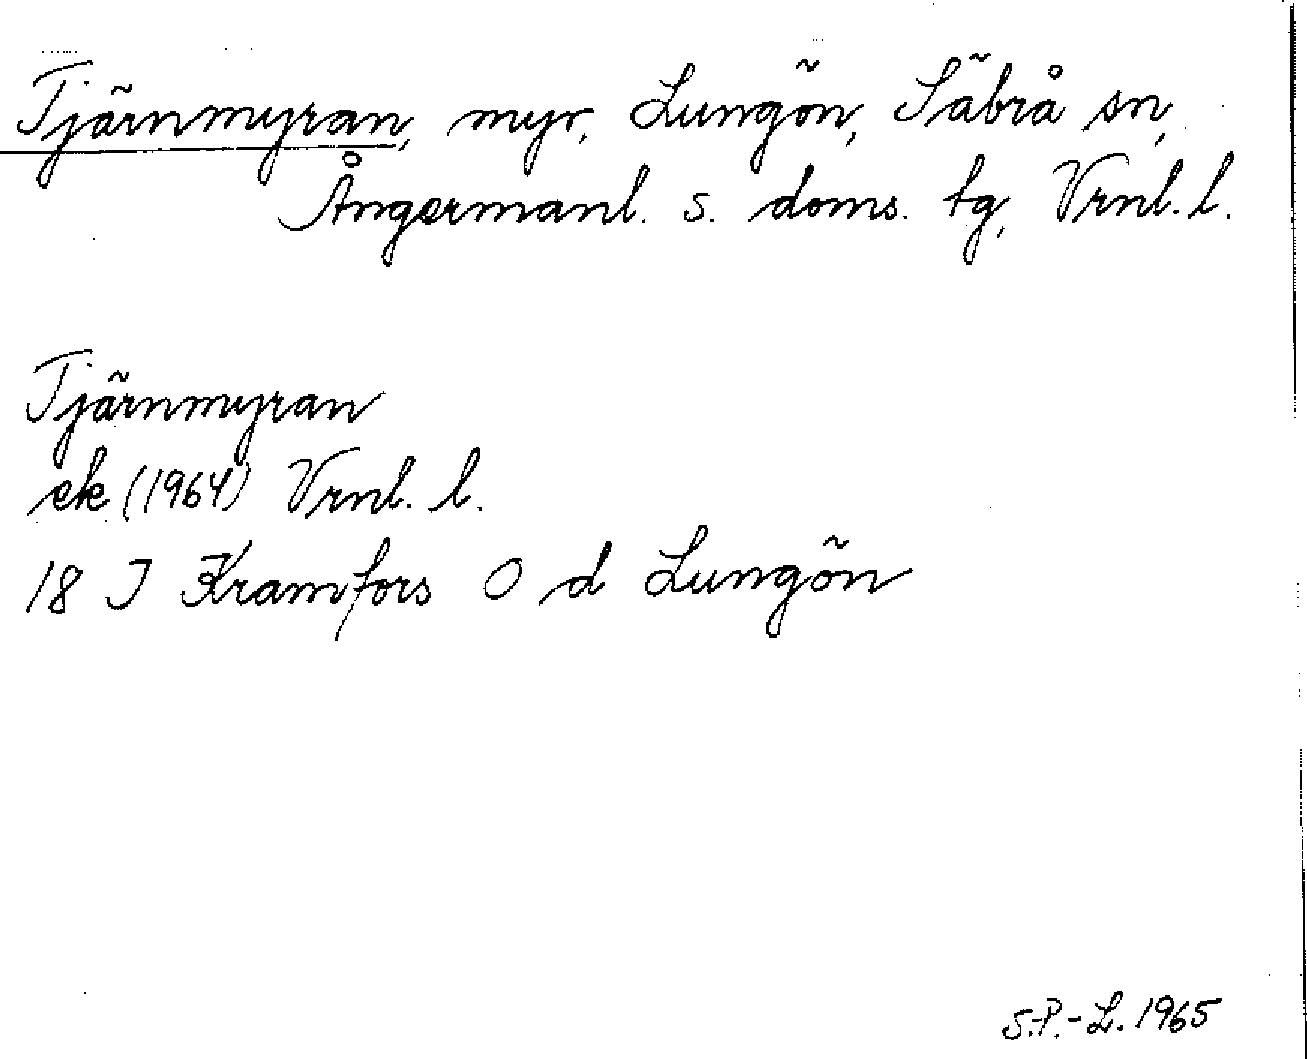 Tjärnmyran, myr, Lungön, Säbrå sn,
Ångermanl. s. doms. tg, Vrnl. l.
Tjärnmyran
ek (1964) Vrnl. l.
18 J Kramfors O d Lungön
S.-P.-L. 1965